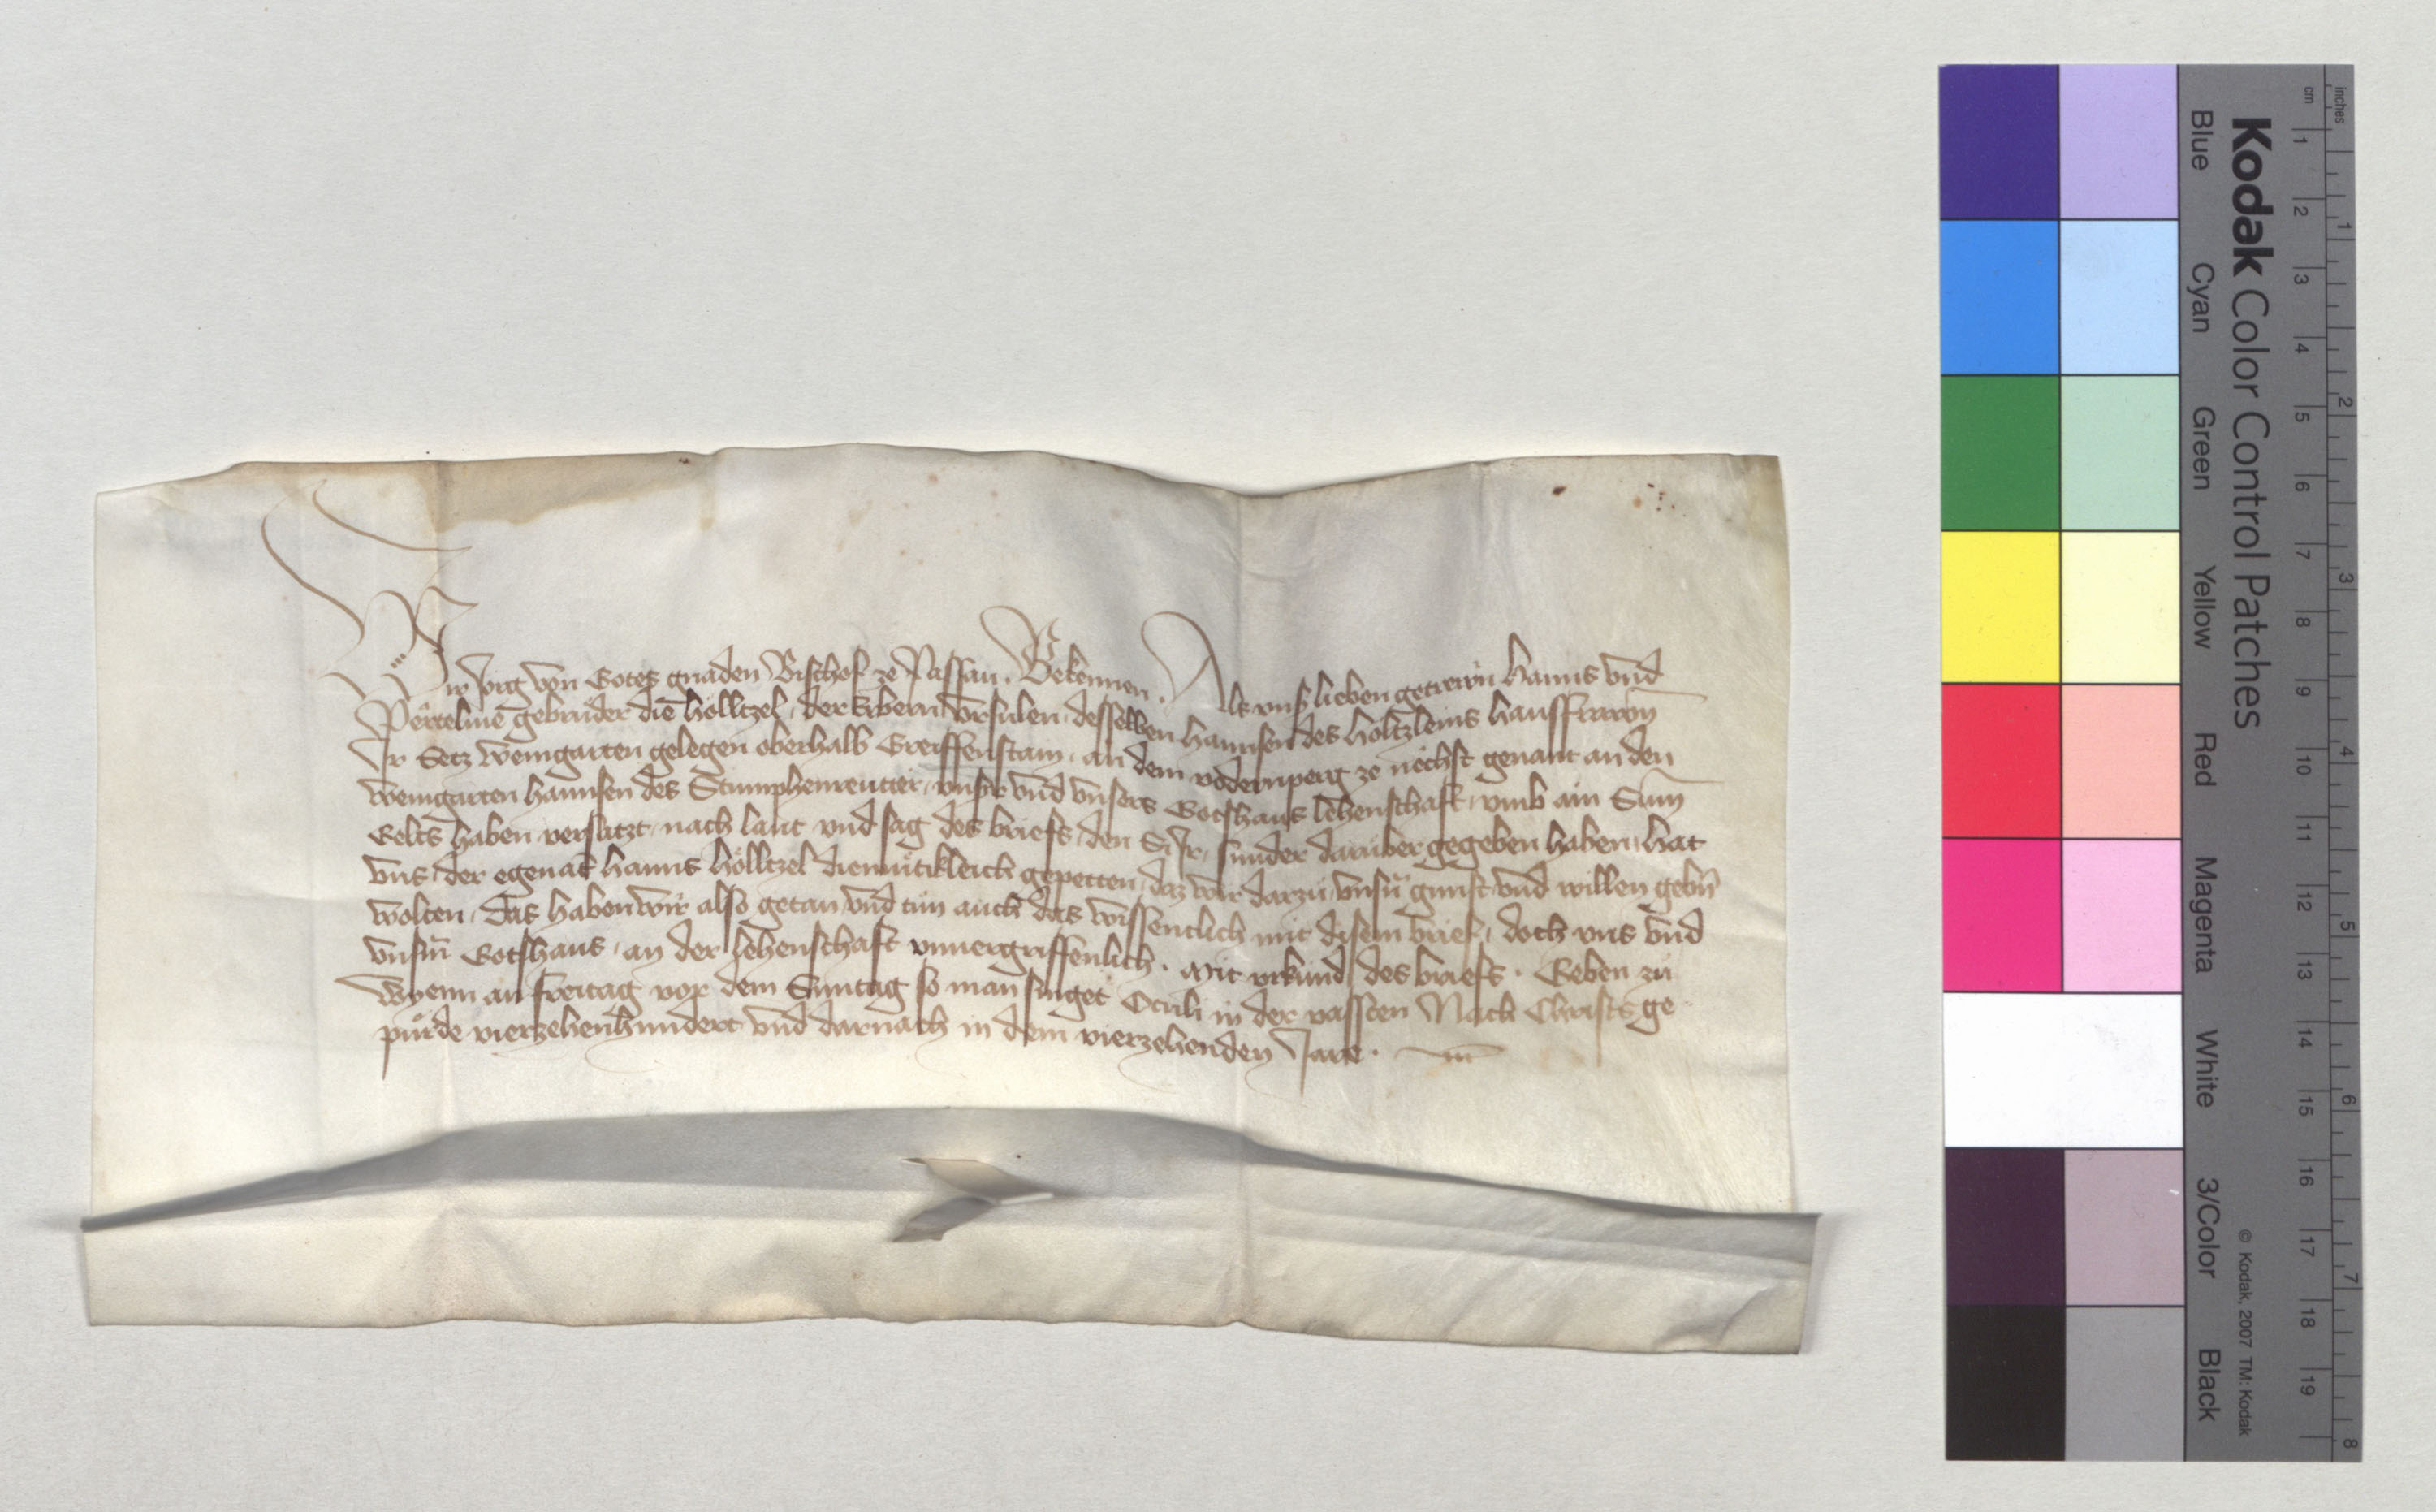 Wir Jorg von Gotes gnaden Bischof ze Passau. Bekennen. Als unsr lieben getrewn Hanns und
Pertelme gebruder die Hölltzel, der Erbern Ursulen desselben Hannsen des Höltzleins hausfrawn
Ir Setz weingarten gelegen oberhalb Greiffenstain, an dem rodernperg ze nechst genant an den
weingarten Hannsen des Stumphenreutter, unsr und unsers Gotshaus lehenschaft, umb ain Sum
Gelts haben versatzt, nach laut und sag des briefs, den Si Ir, sunder daruber gegeben haben, hat
uns, der egenat Hanns Hölltzel diemütikleich gepetten, daz wir darzu, unsn gunst und willen gebn
wolten, Das haben wir also getan und tun auch das wissentlich mit disem brief, doch uns und
unsm Gotshaus, an der lehenschaft unvergriffenlich. Mit urkund des briefs. Geben zu
Wyenn an Freitag vor dem Suntag so man singet Oculi in der vassten Nach Christs ge
pürde vierzehenhundert und darnach in dem vierzehenden Jare.
Kodak Color Control Patches
Blue Cyan Green Yellow Red Magenta White 3/Color Black
© Kodak, 2007 TM: Kodak
cm 1 2 3 4 5 6 7 8 9 10 11 12 13 14 15 16 17 18 19
inches 1 2 3 4 5 6 7 8